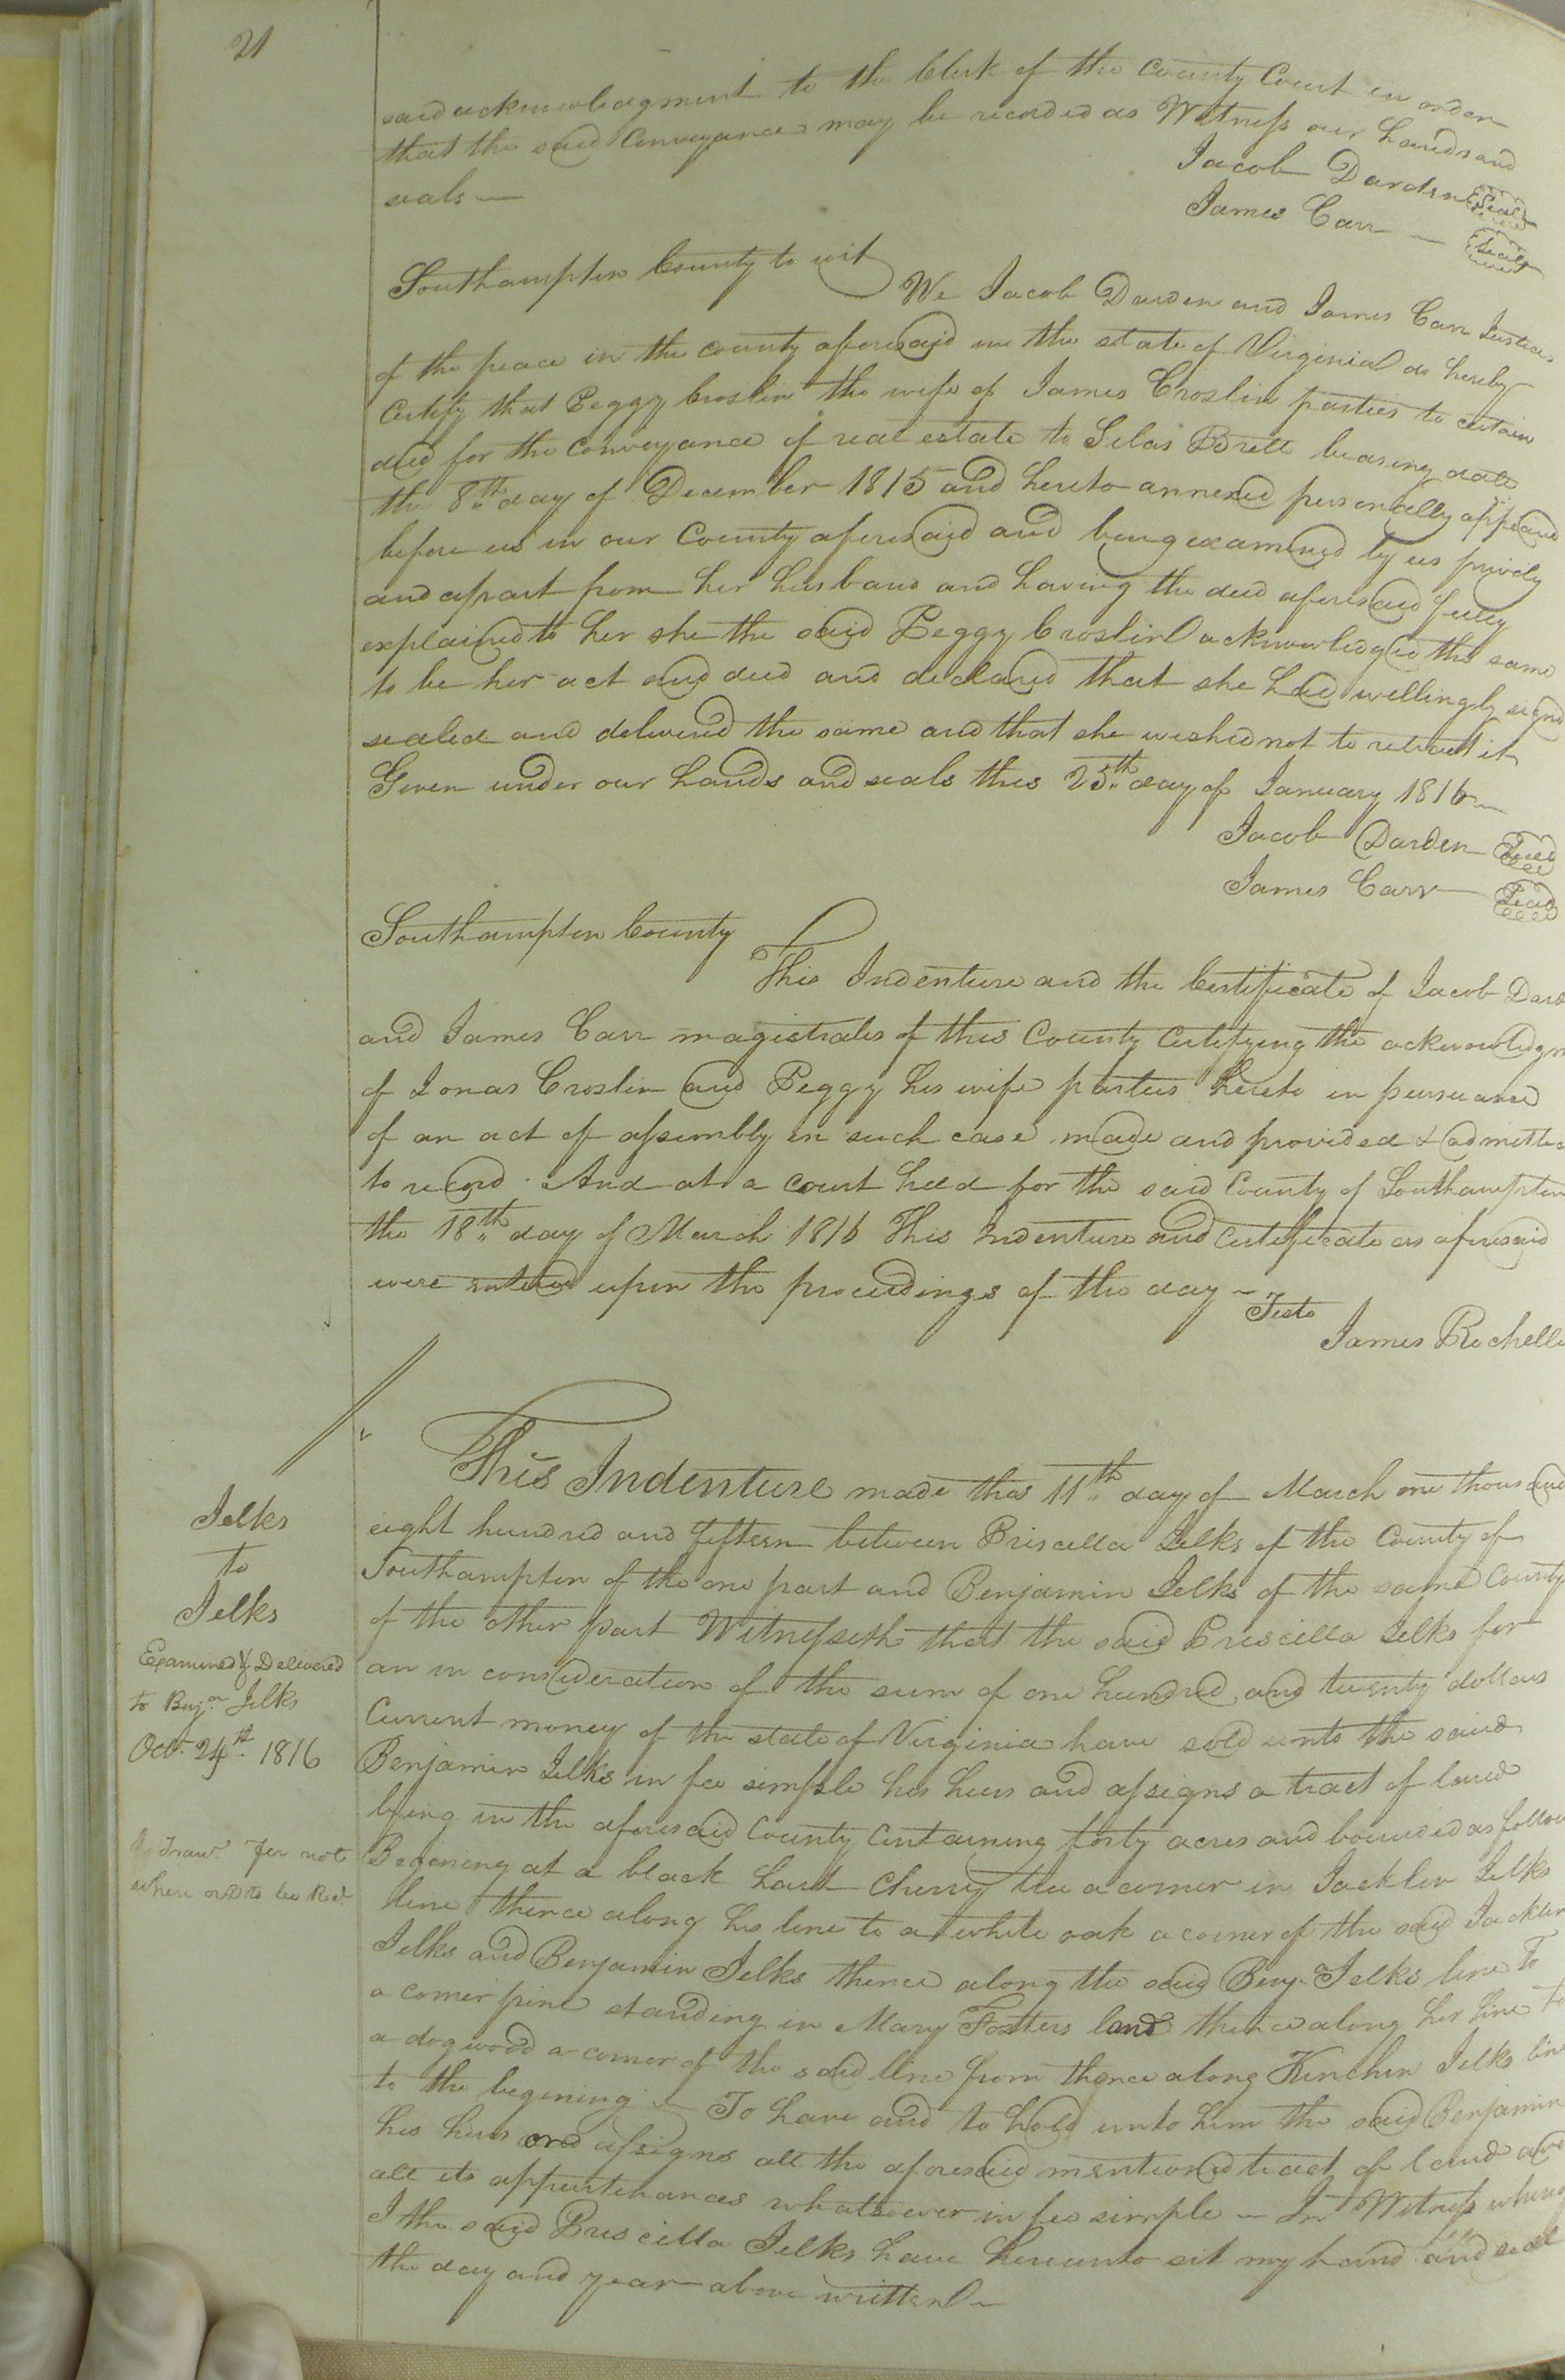 21
said acknowledgment to the Clerk of the County Court in order
that the said Conveyance may be recorded as Witness our hands and
seals
Jacob Darden Seal
James Carr Seal
Southampton County to wit
We Jacob Darden and James Carr Justices
of the peace in the county aforesaid in the state of Virginia do hereby
Certify that Peggy Croslin the wife of James Croslin parties to certain
deed for the Conveyance of real estate to Silas Britt bearing date
the 8th day of December 1815 and hereto annexed personally appeard
before us in our County aforesaid and being examined by us privily
and apart from her husband and having the deed aforesaid fully
explained to her she the said Peggy Croslin acknowledged the same
to be her act and deed and declared that she had willingly signd
sealed and delivered the same and that she wished not to retract it
Given under our hands and seals this 25th day of January 1816
Jacob Darden Seal
James Carr Seal
Southampton County
This Indenture and the Certificate of Jacob Dard
and James Carr magistrates of this County Certifying the acknowledgm
of Jonas Croslin and Peggy his wife parties hereto in pursuance
of an act of assembly in such case made and provided & admitted
to record. And at a court held for the said County of Southampton
the 18th day of March 1816 This Indenture and Certificate as aforesaid
were entered upon the proceedings of the day
Teste
James Rochelle
This Indenture made this 11th day of March one thousand
eight hundred and fifteen between Priscilla Jelks of the County of
Southampton of the one part and Benjamin Jelks of the same County
of the other part Witnesseth that the said Priscilla Jelks for
an in consideration of the sum of one hundred and twenty dollars
Current money of the state of Virginia have sold unto the said
Benjamin Jelks in fee simple his heirs and assigns a tract of land
lying in the aforesaid County Containing forty acres and bounded as follow
Begening at a black hart Cherry tree a corner in Jacklin Jelks
line thence along his line to a white oak a corner of the said Jacklin
Jelks and Benjamin Jelks thence along the said Benj.a Jelks line To
a corner pine standing in Mary Fosters land thence along her line to
a dogwood a corner of the said line from thence along Kinchin Jelks line
to the begening To have and to hold unto him the said Benjamin
his heirs and assigns all the aforesaid mentioned tract of land and
all its appurtenances whatsoever in fee simple In Witness whereo
I the said Priscilla Jelks have hereunto set my hand and seal
the day and year above written
Jelks
to
Jelks
Examined & Delivered
to Benj.a Jelks
Oct. 24th 1816